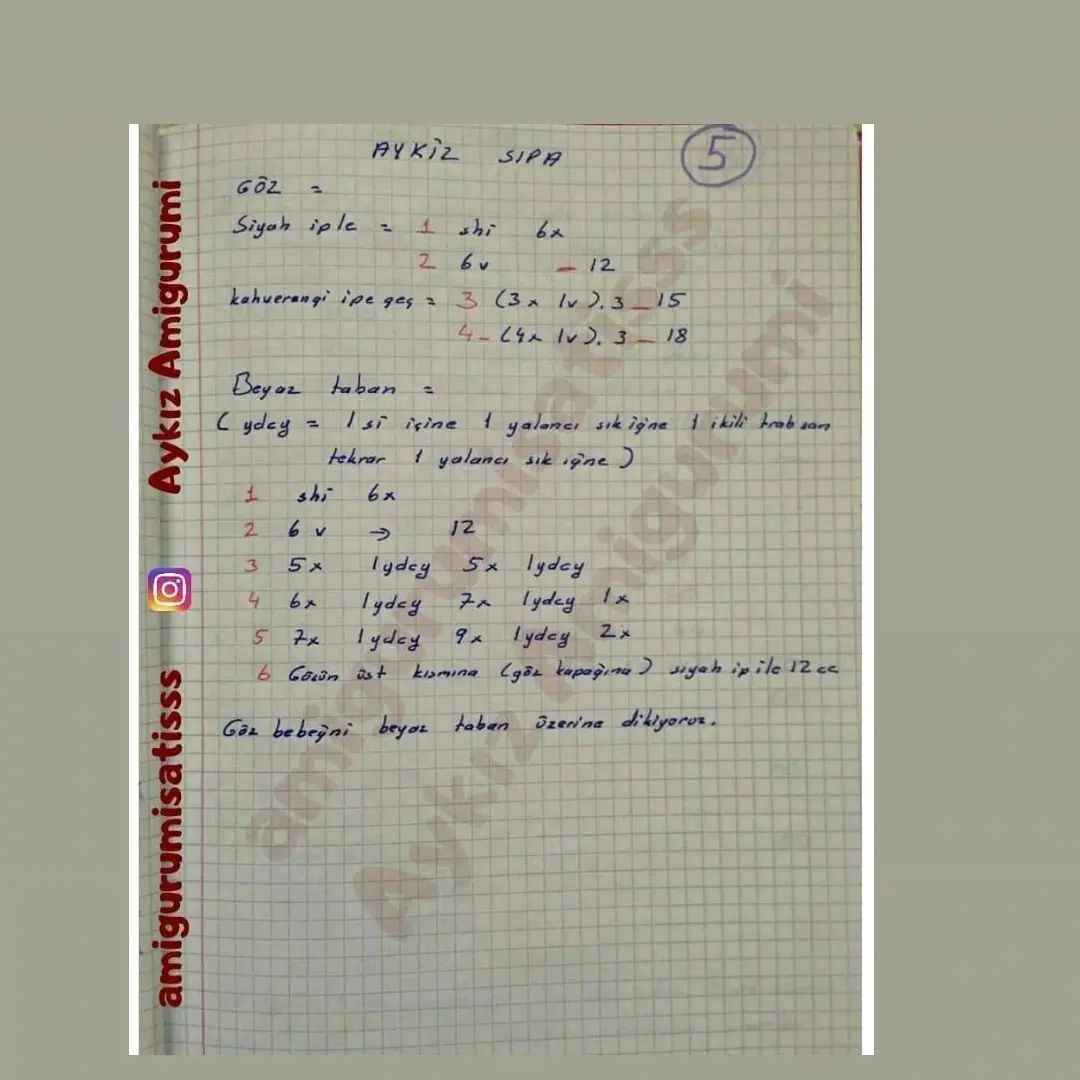 AYKİZ SIPA
5
GÖZ =
Siyah iple = 1 shi 6x
2 6v - 12
kahverengi ipe geç = 3 (3x 1v). 3 - 15
4- (4x 1v). 3 - 18
Beyaz taban =
( ydcy = 1 si içine 1 yalancı sık iğne 1 ikili trabzan
tekrar 1 yalancı sık iğne )
1 shi 6x
2 6 v → 12
3 5x 1ydcy 5x 1ydcy
4 6x 1ydcy 7x 1ydcy 1x
5 7x 1ydcy 9x 1ydcy 2x
6 Gözün üst kısmına (göz kapağına) siyah ip ile 12 cc
Göz bebeğni beyaz taban üzerine dikiyoruz.
Aykız Amigurumi
amigurumisatisss
amigurumisatisss
Aykız Amigurumi